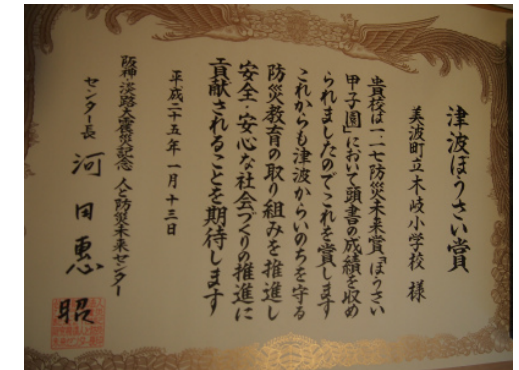 津波ぼうさい賞
美波町立木岐小学校 様
貴校は一.一七防災未来賞「ぼうさい
甲子園」において頭書の成績を収め
られましたのでこれを賞します
これからも津波からいのちを守る
防災教育の取り組みを推進し
安全・安心な社会づくりの推進に
貢献されることを期待します
平成二十五年一月十三日
阪神・淡路大震災記念 人と防災未来センター
センター長 河田惠昭